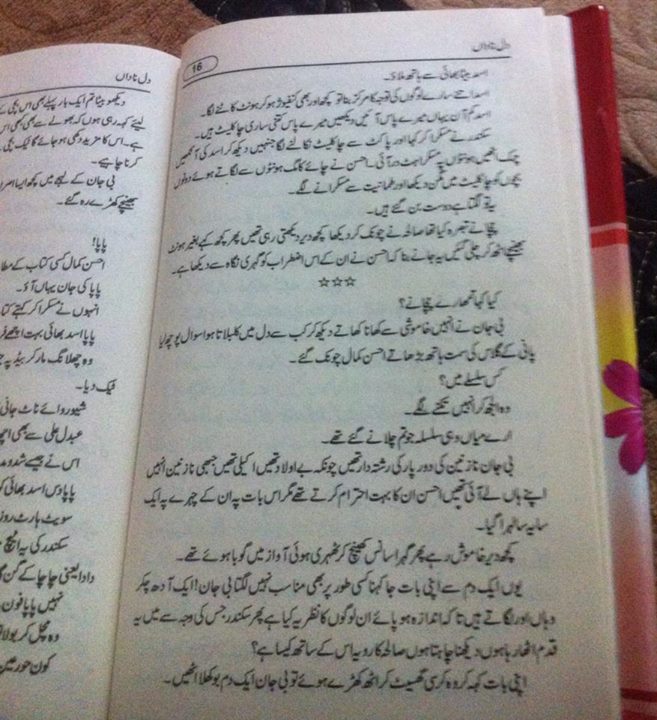 16
دل ناداں
اسد بیٹا بھائی سے ہاتھ ملاؤ۔
اسد اتنے سارے لوگوں کی توجہ کا مرکز بنا تو کچھ اور بھی کنفیوژ ہو کر ہونٹ کاٹنے لگا۔
اسد کم آن یہاں میرے پاس آئیں دیکھیں میرے پاس کتنی ساری چاکلیٹ ہیں۔
سکندر نے مسکرا کر کہا اور پاکٹ سے چاکلیٹ نکالنے لگا جنہیں دیکھ کر اسد کی آنکھیں
چمک اٹھیں ہونٹوں پہ مسکراہٹ در آئی۔ احسن نے چائے کا مگ ہونٹوں سے لگاتے ہوئے دونوں
بچوں کو چاکلیٹ میں مگن دیکھا اور طمانیت سے مسکرانے لگے۔
یہ تو لگتا ہے دوست بن گئے ہیں۔
چچا نے تبصرہ کیا تھا صالحہ نے چونک کر دیکھا کچھ دیر دیکھتی رہی تھیں پھر کچھ کہے بغیر ہونٹ
بھینچے اٹھ کر چلی گئیں یہ جانے بنا کہ احسن نے ان کے اس اضطراب کو گہری نگاہ سے دیکھا ہے۔
☆☆☆
کیا کہا تمہارے چچا نے؟
بی جان نے انہیں خاموشی سے کھانا کھاتے دیکھ کر کب سے دل میں کلبلاتا ہوا سوال پوچھ لیا
پانی کے گلاس کی سمت ہاتھ بڑھاتے احسن کمال چونک گئے۔
کس سلسلے میں؟
وہ الجھ کر انہیں تکنے لگے۔
ارے میاں وہی سلسلہ جو تم چلانے گئے تھے۔
بی جان نازنین کی دور پار کی رشتہ دار تھیں چونکہ بے اولاد تھیں اکیلی تھیں جبھی نازنین انہیں
اپنے ہاں لے آئی تھیں احسن ان کا بہت احترام کرتے تھے مگر اس بات پہ ان کے چہرے پہ ایک
سایہ سا لہرا گیا۔
کچھ دیر خاموش رہے پھر گہرا سانس کھینچ کر ٹھہری ہوئی آواز میں گویا ہوئے تھے۔
یوں ایک دم سے اپنی بات جا کہنا کسی طور پر بھی مناسب نہیں لگتا بی جان! ایک آدھ چکر
وہاں اور لگاتے ہیں تاکہ اندازہ ہو پائے ان لوگوں کا نظریہ کیا ہے پھر سکندر جس کی وجہ سے میں یہ
قدم اٹھا رہا ہوں دیکھنا چاہتا ہوں صالحہ کا رویہ اس کے ساتھ کیسا ہے؟
اپنی بات کہہ کر وہ کرسی گھسیٹ کر اٹھ کھڑے ہوئے تو بی جان ایک دم بوکھلا اٹھیں۔
دل ناداں
دیکھو بیٹا تم ایک بار پہلے بھی اس بچی کے
لیئے کہہ رہی ہوں کہ بھولے سے بھی کبھی اس
ہے۔ اس کا مزید دکھی ہو جائے گا ٹیک بچی
کرنا چاہیے۔
بی جان کے لہجے میں کچھ ایسا اصرار
بھینچے کھڑے رہ گئے۔
پاپا!
احسن کمال کسی کتاب کے مطا
پاپا کی جان یہاں آؤ۔
انہوں نے مسکرا کر کہتے کتا
پاپا اسد بھائی بہت اچھے
وہ چھلانگ مار کر بیڈ پہ
ٹیک دیا۔
شیور وائے ناٹ جانی
عبدل علی سے بھی اچھ
اس نے جیسے شد و مد
پاپا وس اسد بھائی کو
سویٹ ہارٹ روز
سکندر کی یہ اٹیچ
دادا یعنی چاچا کے گن
نہیں پاپا فون
وہ مچل کر بولا
کون حورعین